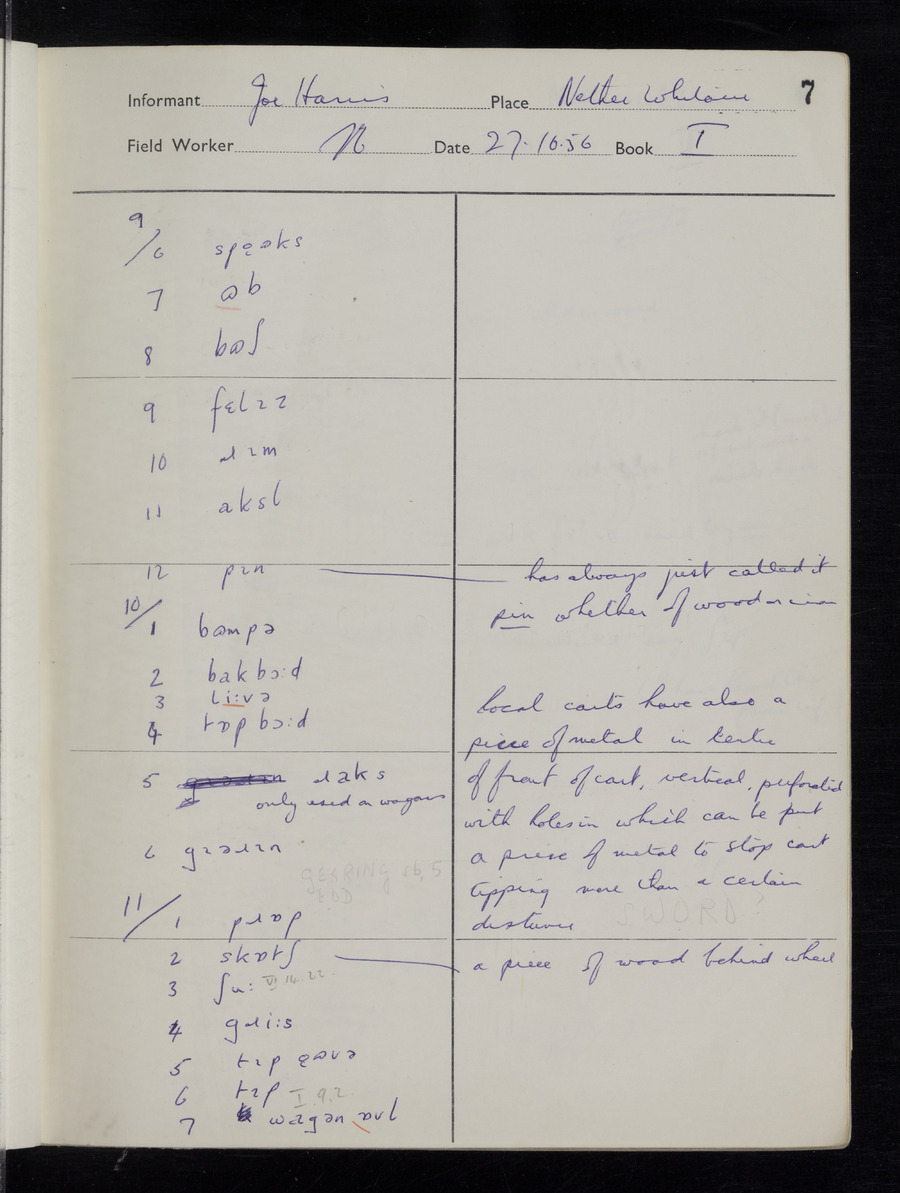 Informant Joe Harris Place Nether Whitacre 7
Field Worker Date 27.10.56 Book I
9/6 spɛəks
7 ɷb
8 bɷʃ
9 fɛlɪz
10 ɹɪm
11 aksl
12 pɪn has always just called it
pin whether of wood or iron
10/1 bɷmpə
2 bakbɔ:d
3 li:və
4 tɒpbɔ:d
local carts have also a
piece of metal in centre
5 ɹaks
only used on wagons
of front of cart, vertical, perforated
with holes in which can be put
6 gɪəɹɪn
a piece of metal to stop cart
GEARING sb, 5
EDD
tipping more than a certain
distance SWORD?
11/1 pɹɒp
2 skɒtʃ a piece of wood behind wheel
3 ʃu: VI.14.22
4 gɹi:s
5 tɪp ɒʊvə
6 tɪp I.9.2
7 wagən